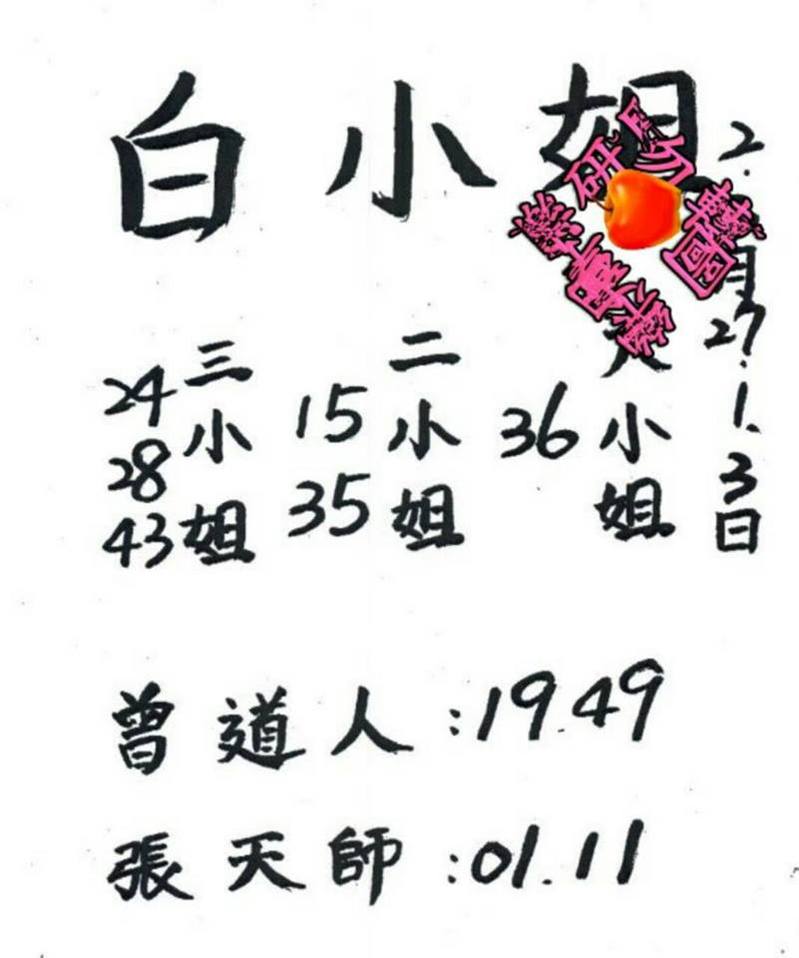 白小姐
2.
月
27.1.3日
大小姐
36
二小姐
15
35
三小姐
24
28
43
曾道人:19.49
張天師:01.11
韓國